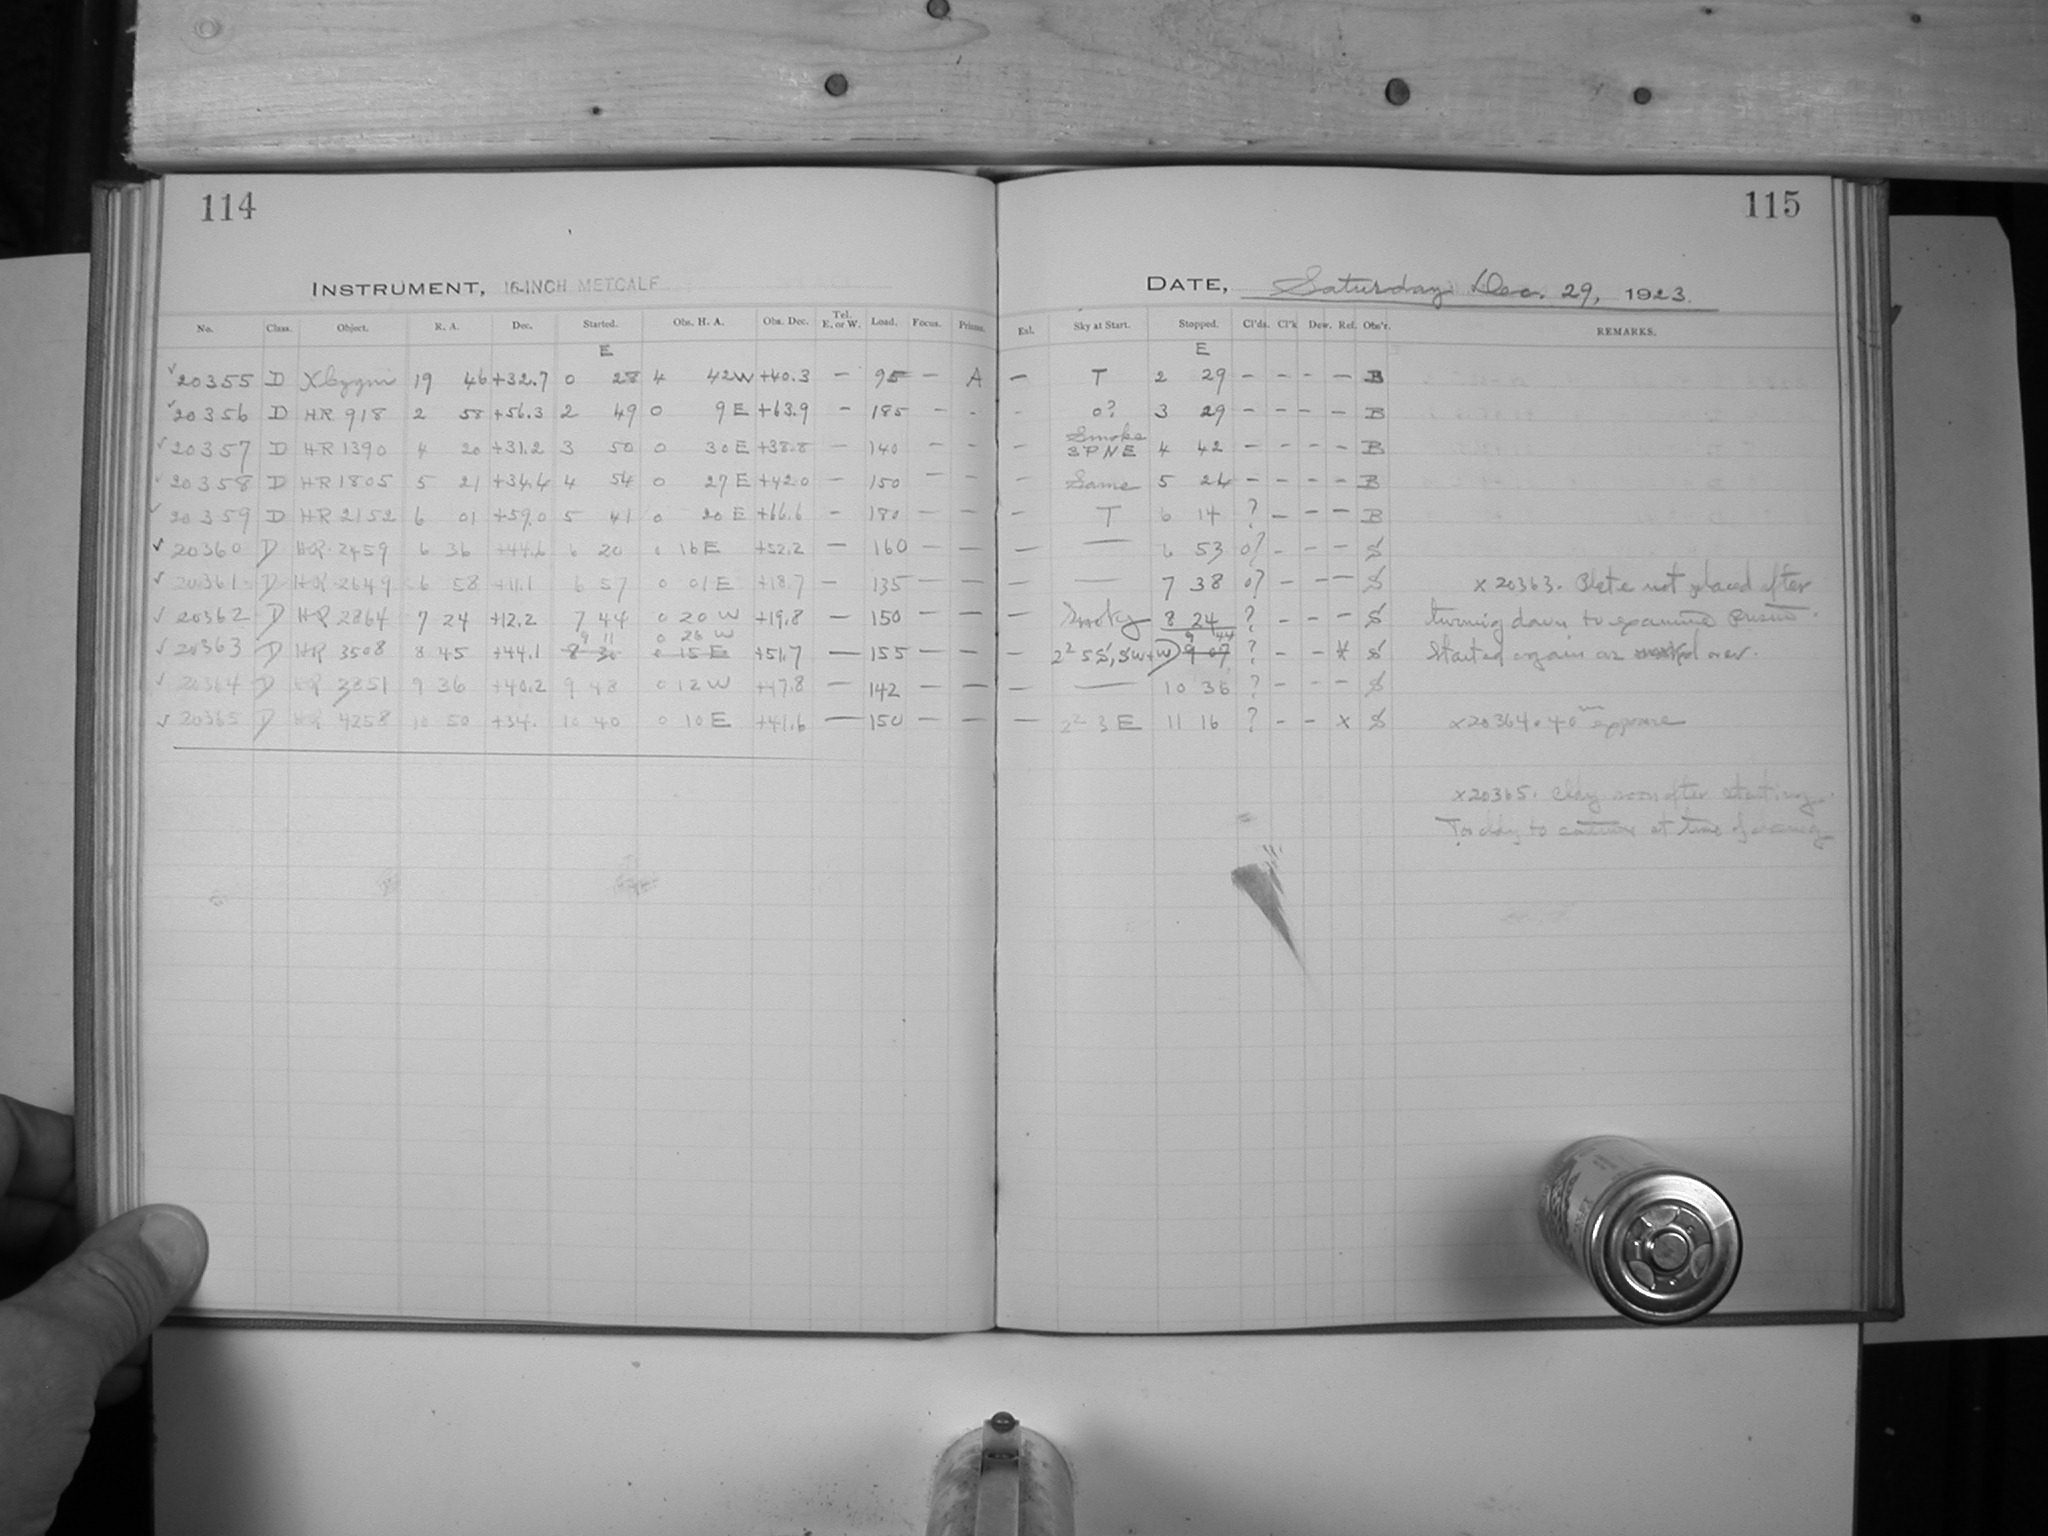 114
INSTRUMENT, 16-INCH METCALF
No. Class. Object. R. A. Dec. Started. Obs. H. A. Obs. Dec. Tel. E. or W. Load. Focus. Prisms.
E
✓20355 D X Cygni 19 46 +32.7 0 28 4 42W +40.3 – 95 – A
✓20356 D HR 918 2 58 +56.3 2 49 0 9 E +63.9 – 185 – -
✓20357 D HR 1390 4 20 +31.2 3 50 0 30 E +38.8 – 140 – –
✓20358 D HR 1805 5 21 +34.4 4 54 0 27 E +42.0 – 150 – –
✓20359 D HR 2152 6 01 +59.0 5 41 0 20 E +66.6 – 180 – –
✓20360 D HR 2459 6 36 +44.6 6 20 0 16 E +52.2 – 160 – –
✓20361 D HR 2649 6 58 +11.1 6 57 0 01 E +18.7 – 135 – –
✓20362 D HR 2864 7 24 +12.2 7 44 0 20 W +19.8 – 150 – –
9 11 0 26 W
✓20363 D HR 3508 8 45 +44.1 8 30 0 15 E +51.7 – 155 – –
✓20364 D HR 3851 9 36 +40.2 9 48 0 12 W +47.8 – 142 – –
✓20365 D HR 4258 10 50 +34. 10 40 0 10 E +41.6 – 150 – –
115
DATE, Saturday Dec. 29, 1923.
Exl. Sky at Start. Stopped. Cl'ds. Cl'k Dew. Ref. Obs'r. REMARKS.
E
– T 2 29 – – – – B
- 0? 3 29 – – – – B
Smoke
– 3 P N E 4 42 – – – – B
– Same 5 24 – – – – B
– T 6 14 ? – – – B
– — 6 53 0? – – – S
– — 7 38 0? – – – S x 20363. Plate not placed after
– Smoky 8 24 ? – – – S turning down to examine
9 44
– 2² 5 S, SW+W 9 07 ? – – * S Started again as over.
– — 10 36 ? – – – S
– 2² 3 E 11 16 ? – – x S x20364. 40ᵐ exposure
x20365. Cldy soon after starting.
Too cldy to continue at time of closing